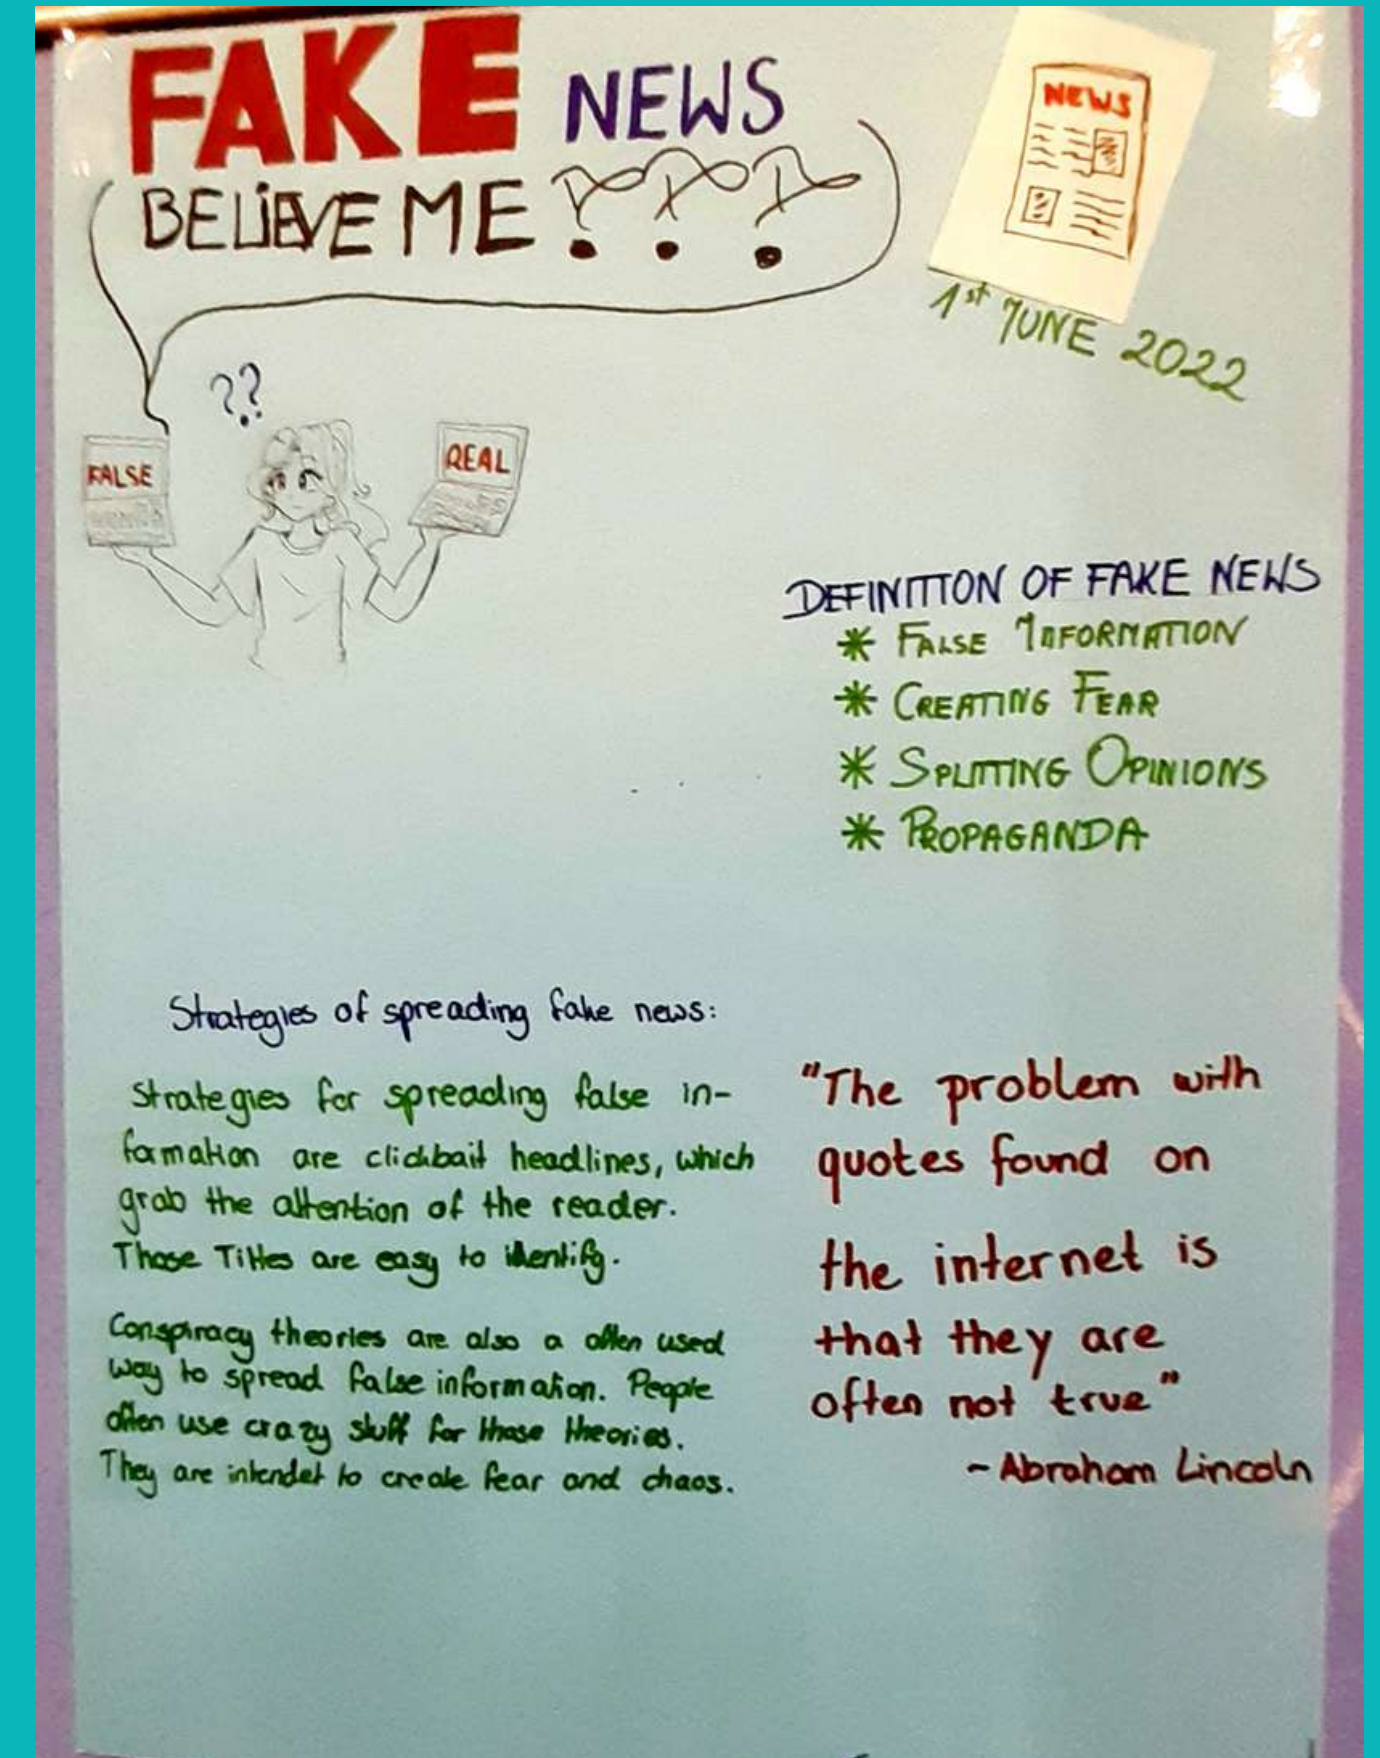 FAKE NEWS
BELIEVE ME ???
NEWS
1st JUNE 2022
??
FALSE
REAL
DEFINITION OF FAKE NEWS
* FALSE INFORMATION
* CREATING FEAR
* SPLITTING OPINIONS
* PROPAGANDA
Strategies of spreading fake news:
Strategies for spreading false in-
formation are clickbait headlines, which
grab the attention of the reader.
Those Titles are easy to identify.
Conspiracy theories are also a often used
way to spread false information. People
often use crazy stuff for those theories.
They are intendet to create fear and chaos.
"The problem with
quotes found on
the internet is
that they are
often not true"
~ Abraham Lincoln